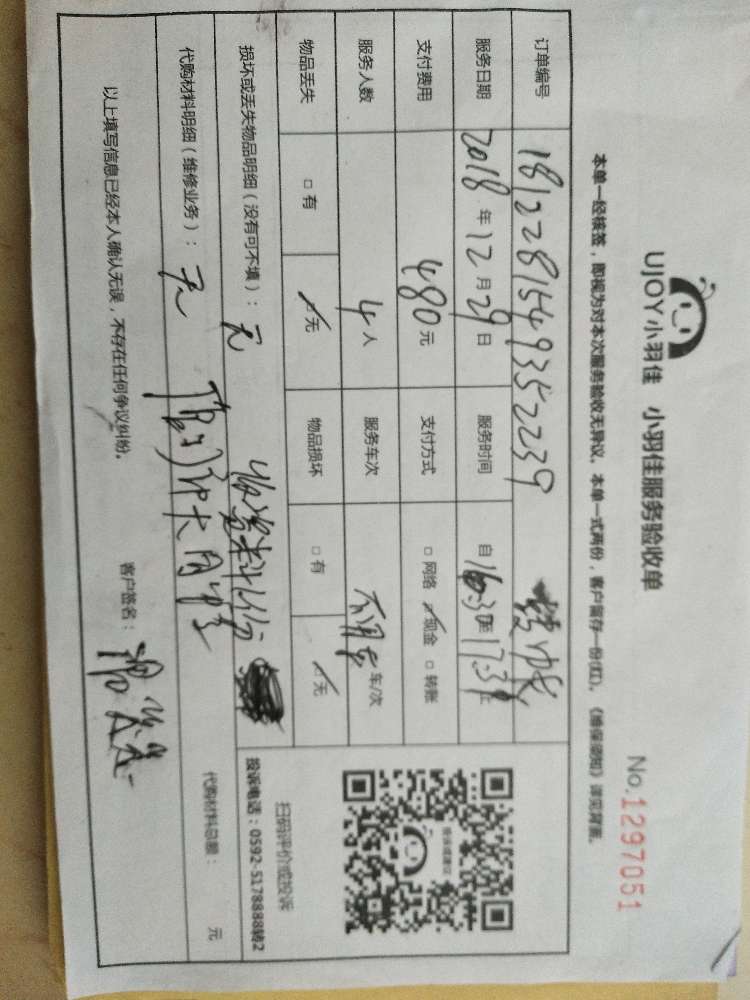 UJOY小羽佳 小羽佳服务验收单
No.1297051
本单一经核签，即视为对本次服务验收无异议。本单一式两份，客户留存一份(红)。《维保须知》详见背面。
订单编号 1812281549352239
服务日期 2018 年 12 月 29 日 服务时间 自 16:30 至 17:30 止
支付费用 480 元 支付方式 □ 网络 ☑ 现金 □ 转账
服务人数 4 人 服务车次 不用车 车/次
物品丢失 □ 有 ☑ 无 物品损坏 □ 有 ☑ 无
损坏或丢失物品明细（没有可不填）： 无
代购材料明细（维修业务）： 无
代购材料总额： 元
以上填写信息已经本人确认无误，不存在任何争议纠纷。
客户签名：
扫码评价或投诉
投诉电话：0592-5178888转2